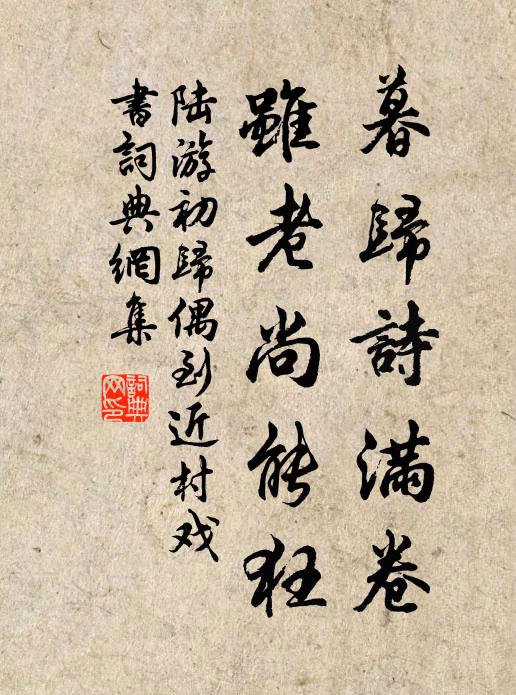 暮歸詩滿卷
雖老尚能狂
陆游初歸偶到近村戏
書詞典網集
詞典网印